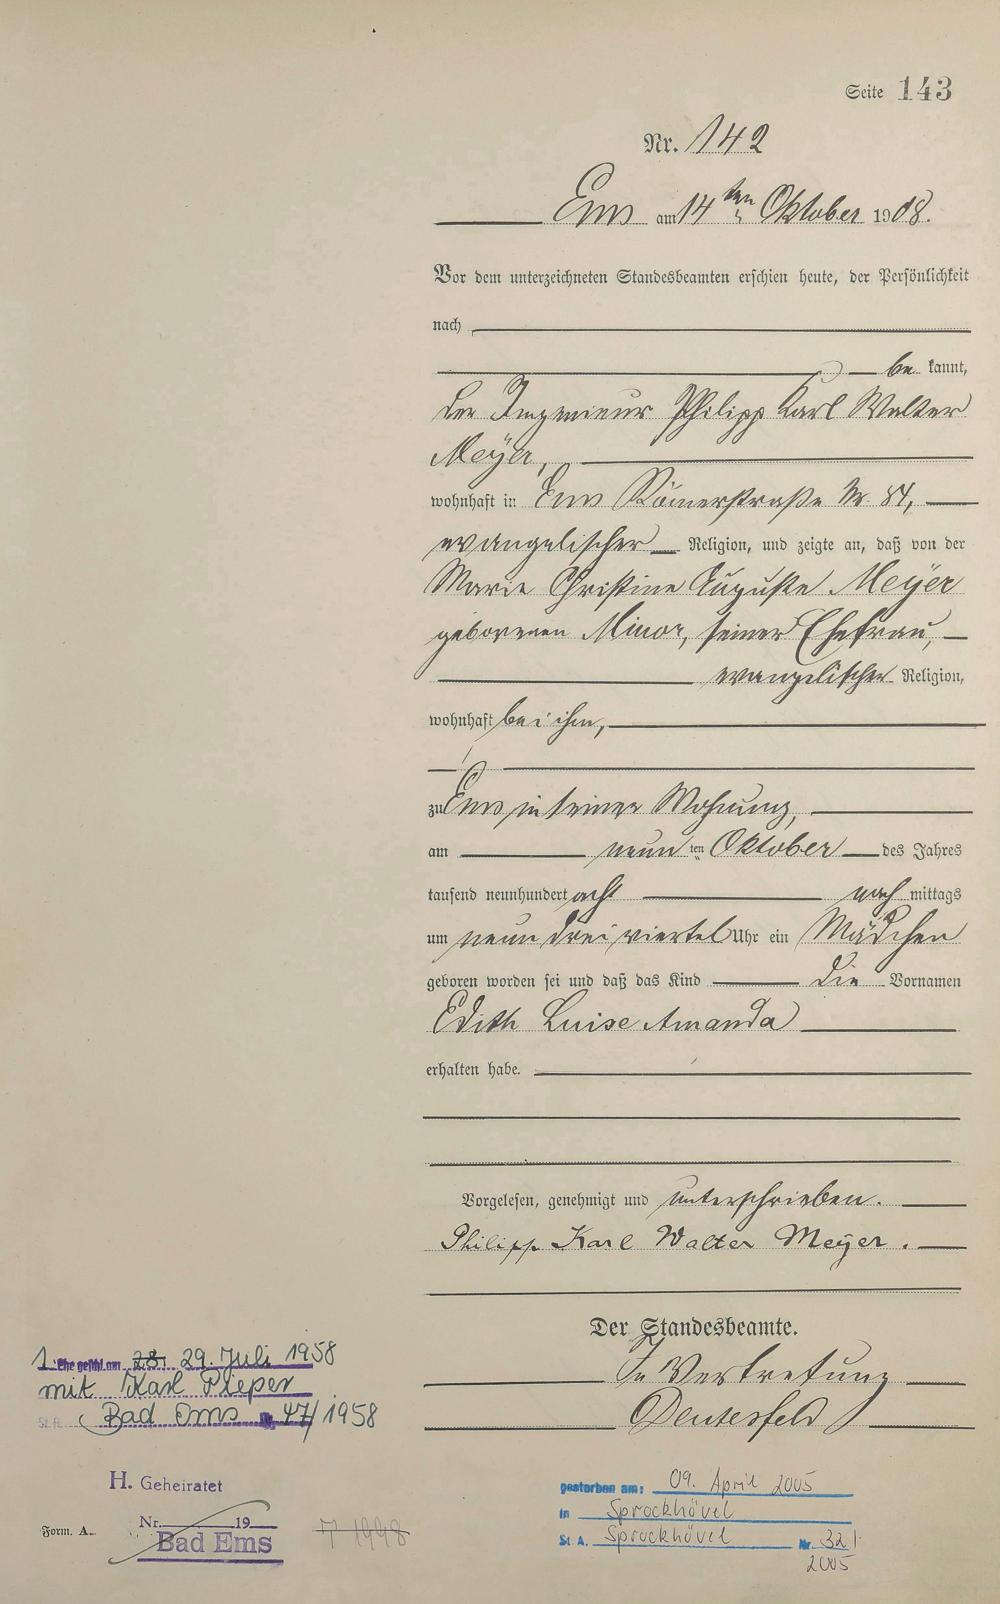 Seite 143
Nr. 142
Ems am 14ten Oktober 1908.
Vor dem unterzeichneten Standesbeamten erschien heute, der Persönlichkeit
nach
be kannt,
der Ingenieur Philipp Karl Walter
Meÿer,
wohnhaft in Ems Römerstraße Nr. 84,
evangelischer Religion, und zeigte an, daß von der
Marie Christine Auguste Meÿer
geborenen Minor, seiner Ehefrau,
evangelischer Religion,
wohnhaft bei ihm,
zu Ems in seiner Wohnung,
am neun ten Oktober des Jahres
tausend neunhundert acht nach mittags
um neun drei viertel Uhr ein Mädchen
geboren worden sei und daß das Kind die Vornamen
Edith Luise Amanda
erhalten habe.
Vorgelesen, genehmigt und unterschrieben.
Philipp Karl Walter Meÿer.
Der Standesbeamte.
In Vertretung
Deutesfeld
1. Ehe geschl. am 28. 29. Juli 1958
mit Karl Pieper
St. A. Bad Ems Nr. 47/1958
H. Geheiratet
Nr. 19
Bad Ems
Form. A.
1998
gestorben am: 09. April 2005
in Sprockhövel
St. A. Sprockhövel Nr. 32/
2005